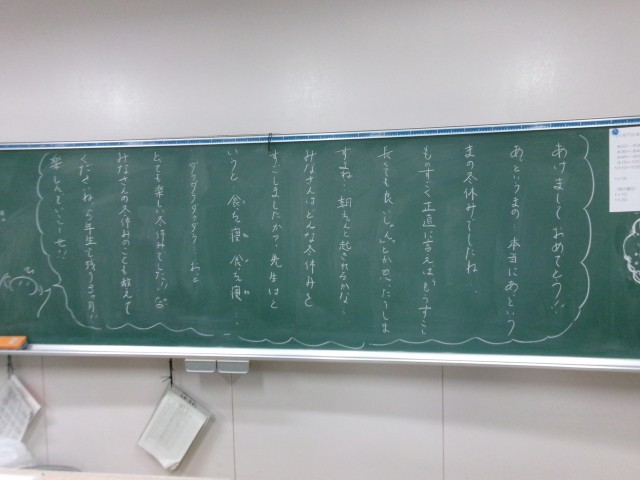 あけましておめでとう!!
あっというまの…本当にあっという
まの冬休みでしたね…
もっすごく正直に言えば、もうすこし
長くても良い…じゃんとか思ったりしま
すね…朝ちゃんと起きれるかな…
みなさんはどんな冬休みを
すごしましたか?先生はと
いうと 食っちゃ寝 食っちゃ寝…
ダラダラダラダラ…わっと
とても楽しい冬休みでした!!
みなさんの冬休みのことも教えて
くださいね。5年生も残り3か月…
楽しんでいこーぜ!!